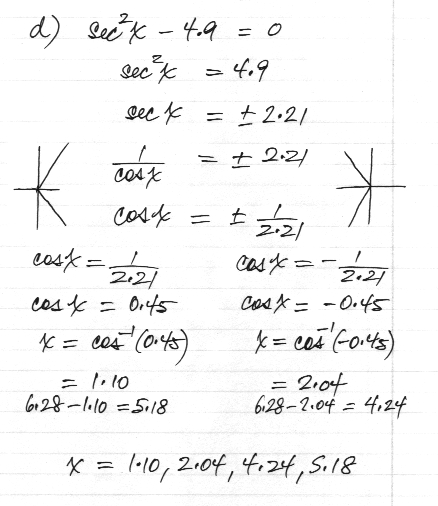 d) sec²x - 4.9 = 0
sec²x = 4.9
sec x = ± 2.21
1/cos x = ± 2.21
cos x = ± 1/2.21
cos x = 1/2.21
cos x = 0.45
x = cos⁻¹(0.45)
= 1.10
6.28-1.10 = 5.18
cos x = - 1/2.21
cos x = -0.45
x = cos⁻¹(-0.45)
= 2.04
6.28-2.04 = 4.24
x = 1.10, 2.04, 4.24, 5.18